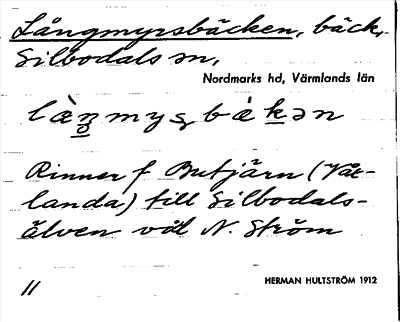 Långmyrsbäcken, bäck,
Silbodals sn,
Nordmarks hd, Värmlands län
Rinner f. Butjärn (Våt-
landa) till Silbodals-
älven vid N. Ström
HERMAN HULTSTRÖM 1912
11